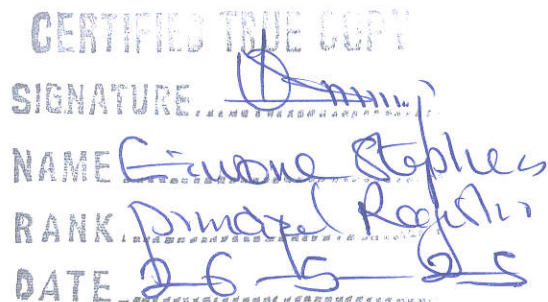 CERTIFIED TRUE COPY
SIGNATURE
NAME Stephen
RANK Principal Registrar
DATE 26-5-25